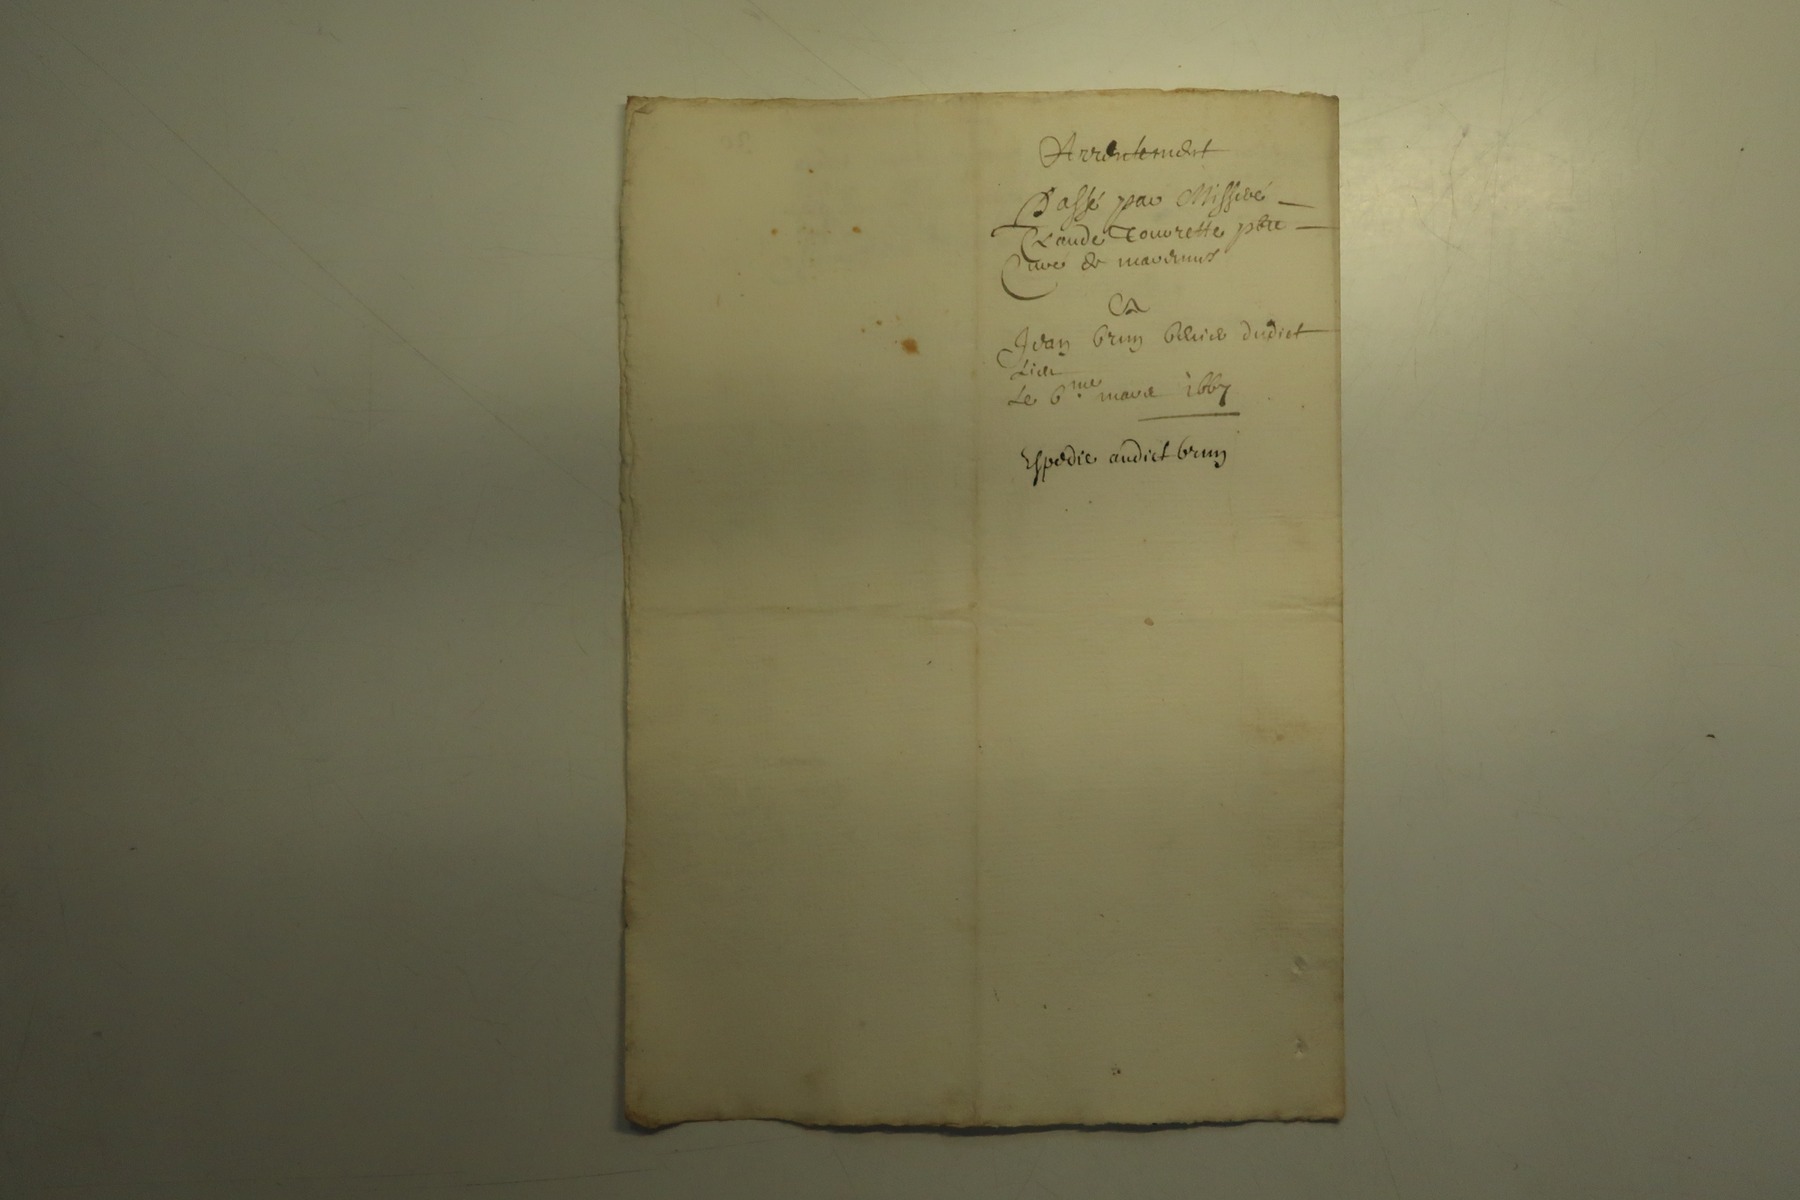 Arrentement
Passé par Missire
Claude Couvrette pbre
Curé de
A
Jean brun dudict
Lieu
Le 6me 1667
Espedie audict brun